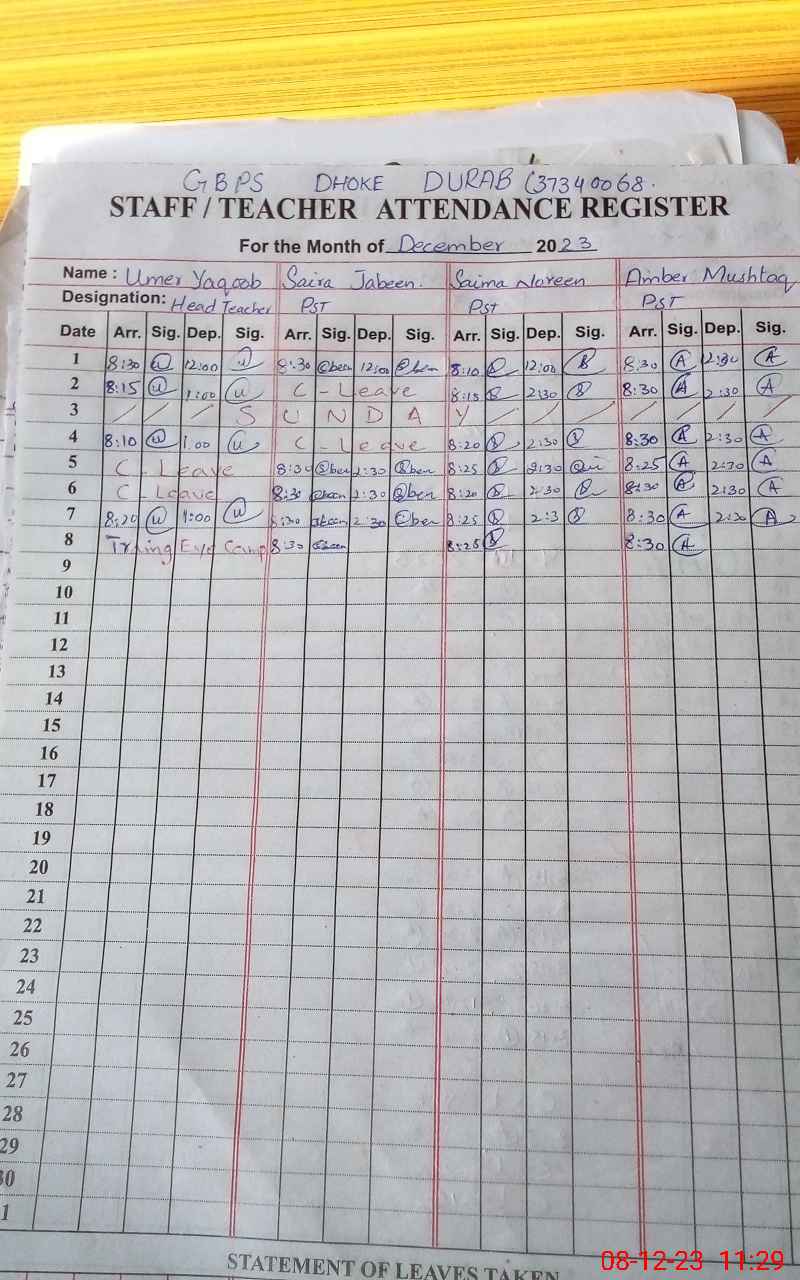 GBPS DHOKE DURAB (37340068.
STAFF / TEACHER ATTENDANCE REGISTER
For the Month of December 2023
Name : Umer Yaqoob Saira Jabeen. Saima Noreen Amber Mushtaq
Designation: Head Teacher PST PST PST
Date Arr. Sig. Dep. Sig. Arr. Sig. Dep. Sig. Arr. Sig. Dep. Sig. Arr. Sig. Dep. Sig.
1 8:30 U 12:00 U 8:30 12:00 8:10 S 12:00 S 8:30 A 12:30 A
2 8:15 U 1:00 U C - Leave 8:15 S 2:30 S 8:30 A 2:30 A
3 / / / S U N D A Y / / / / / / /
4 8:10 U 1.00 U C - Leave 8:20 S 2:30 S 8:30 A 2:30 A
5 C - Leave 8:30 2:30 8:25 S 2:30 8:25 A 2:30 A
6 C - Leave 8:30 2:30 8:20 S 2:30 S 8:30 A 2:30 A
7 8:20 U 1:00 U 8:30 2:30 8:25 S 2:3 S 8:30 A 2:30 A
8 Camp 8:30 8:25 S 8:30 A
9
10
11
12
13
14
15
16
17
18
19
20
21
22
23
24
25
26
27
28
29
30
1
STATEMENT OF LEAVES TAKEN
08-12-23 11:29